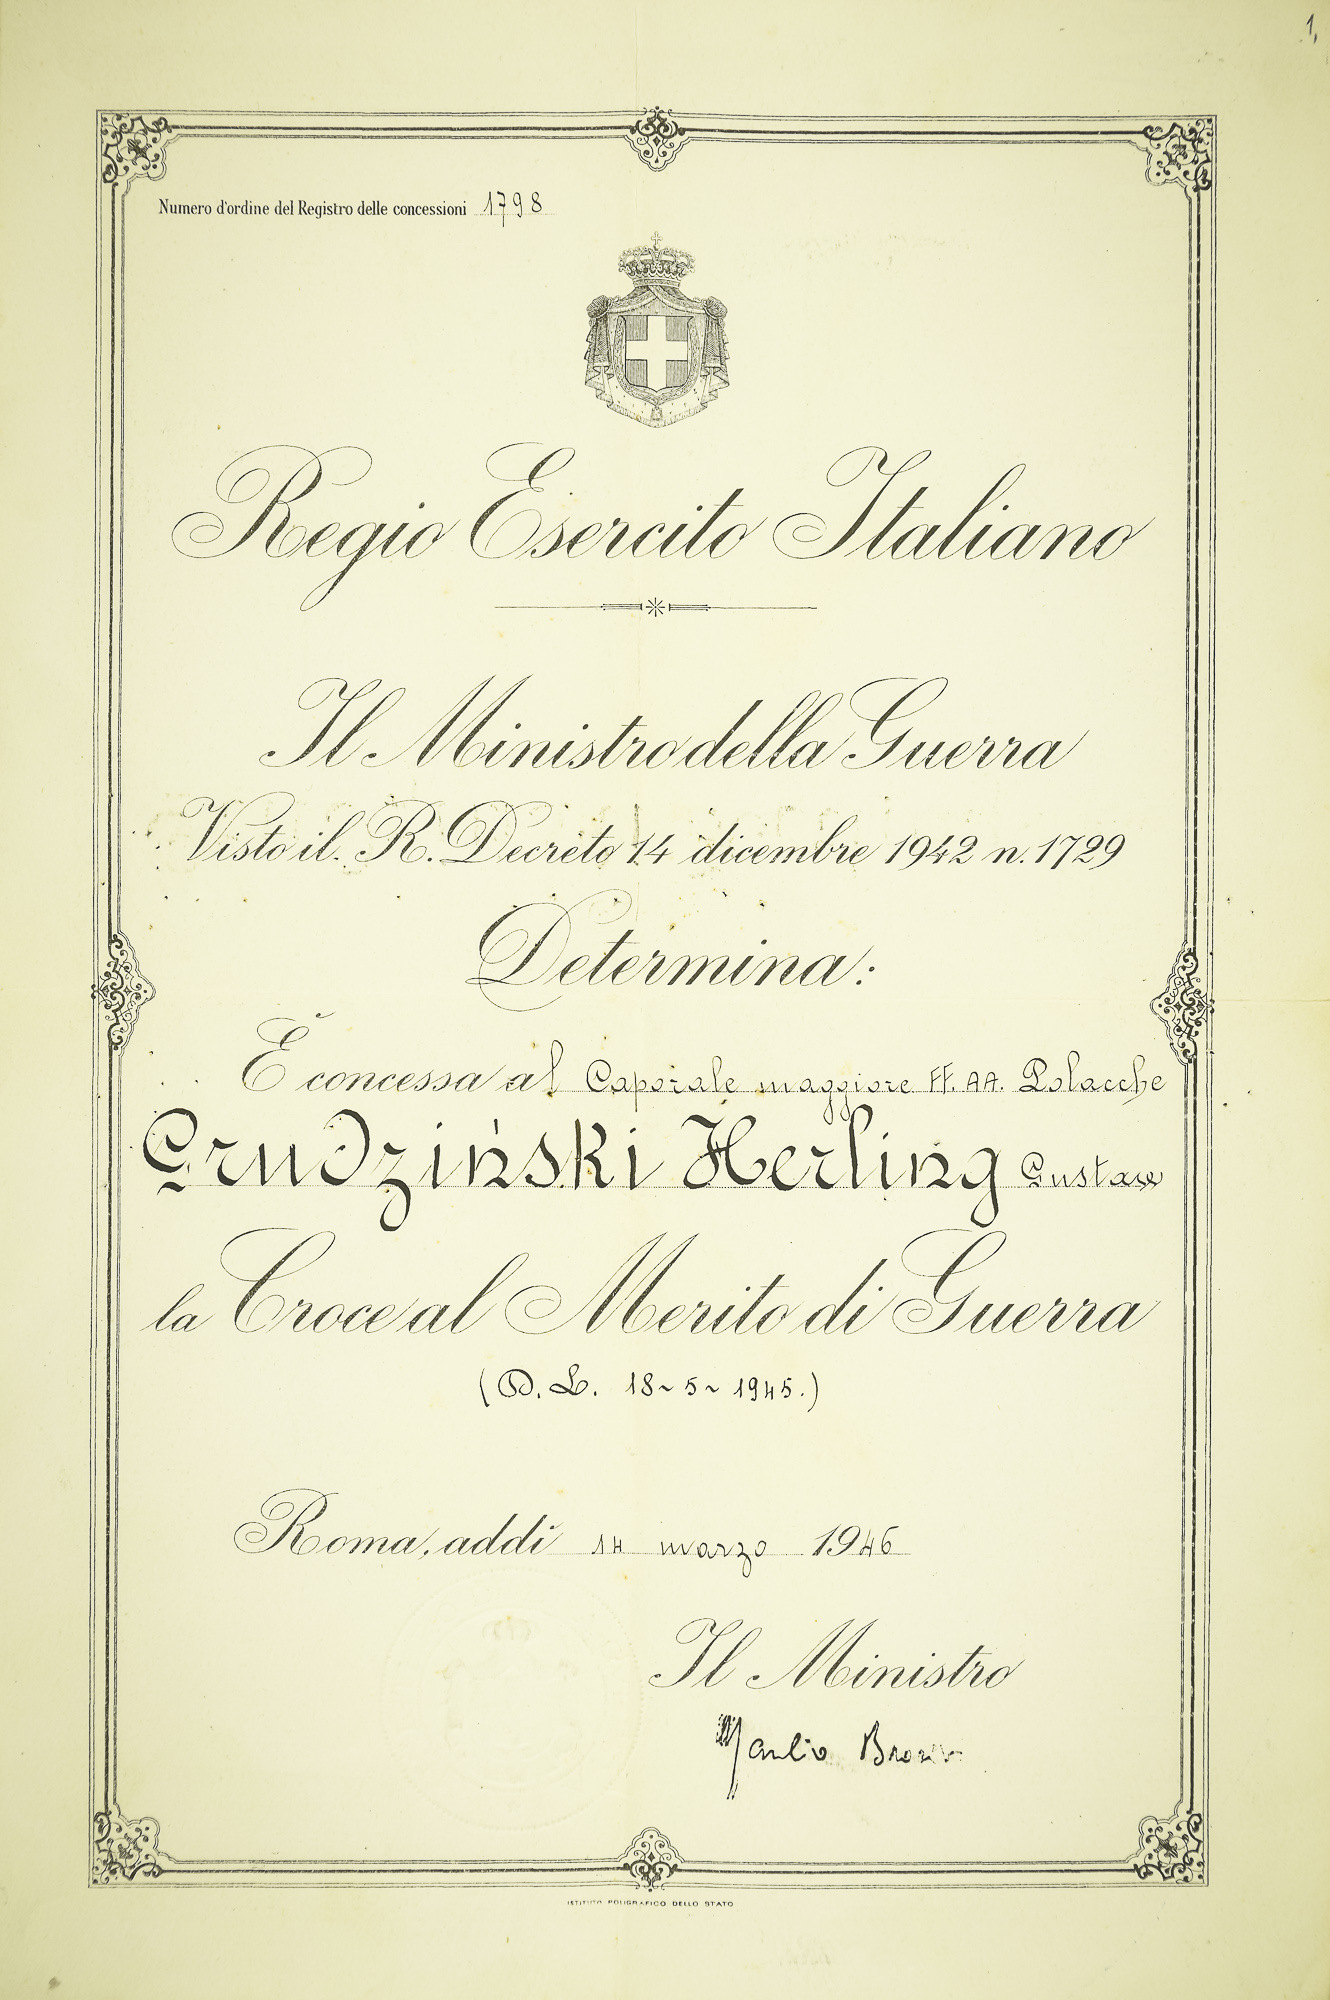 1,
Numero d'ordine del Registro delle concessioni 1798
Regio Esercito Italiano
Il Ministro della Guerra
Visto il R. Decreto 14 dicembre 1942 n. 1729
Determina:
È concessa al Caporale maggiore FF. AA. Polacche
Grudziński Herling Gustaw
la Croce al Merito di Guerra
(D. L. 18-5-1945.)
Roma, addì 14 marzo 1946
Il Ministro
Manlio
ISTITUTO POLIGRAFICO DELLO STATO